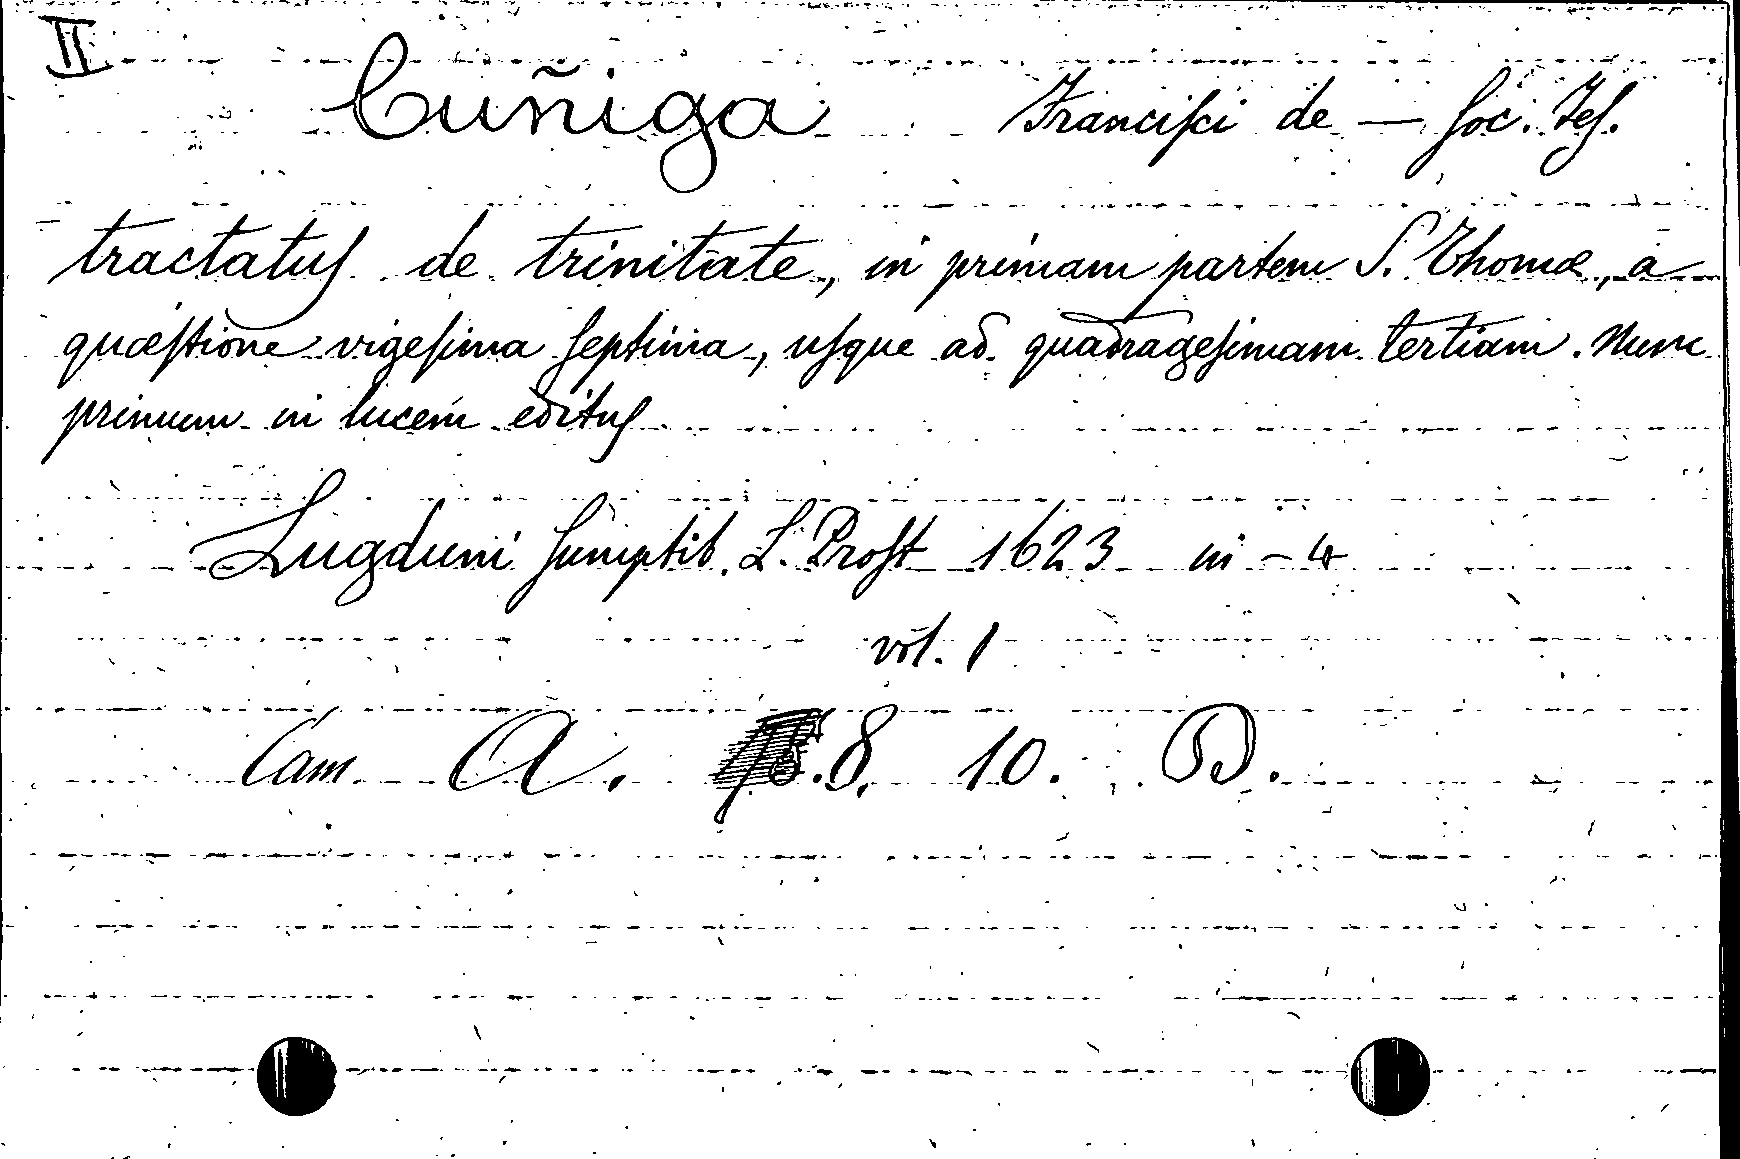 II
Cuñiga Franciſci de — Soc. Jeſ.
tractatuſ de trinitate, in primam partem S. Thomæ, a
quæſtione vigeſima ſeptima, uſque ad quadrageſimam tertiam. Nunc
primum in lucem edituſ
Lugduni ſumptib. L. Proſt 1623 in-4
vol. 1
Cam A. 8. 10. D.